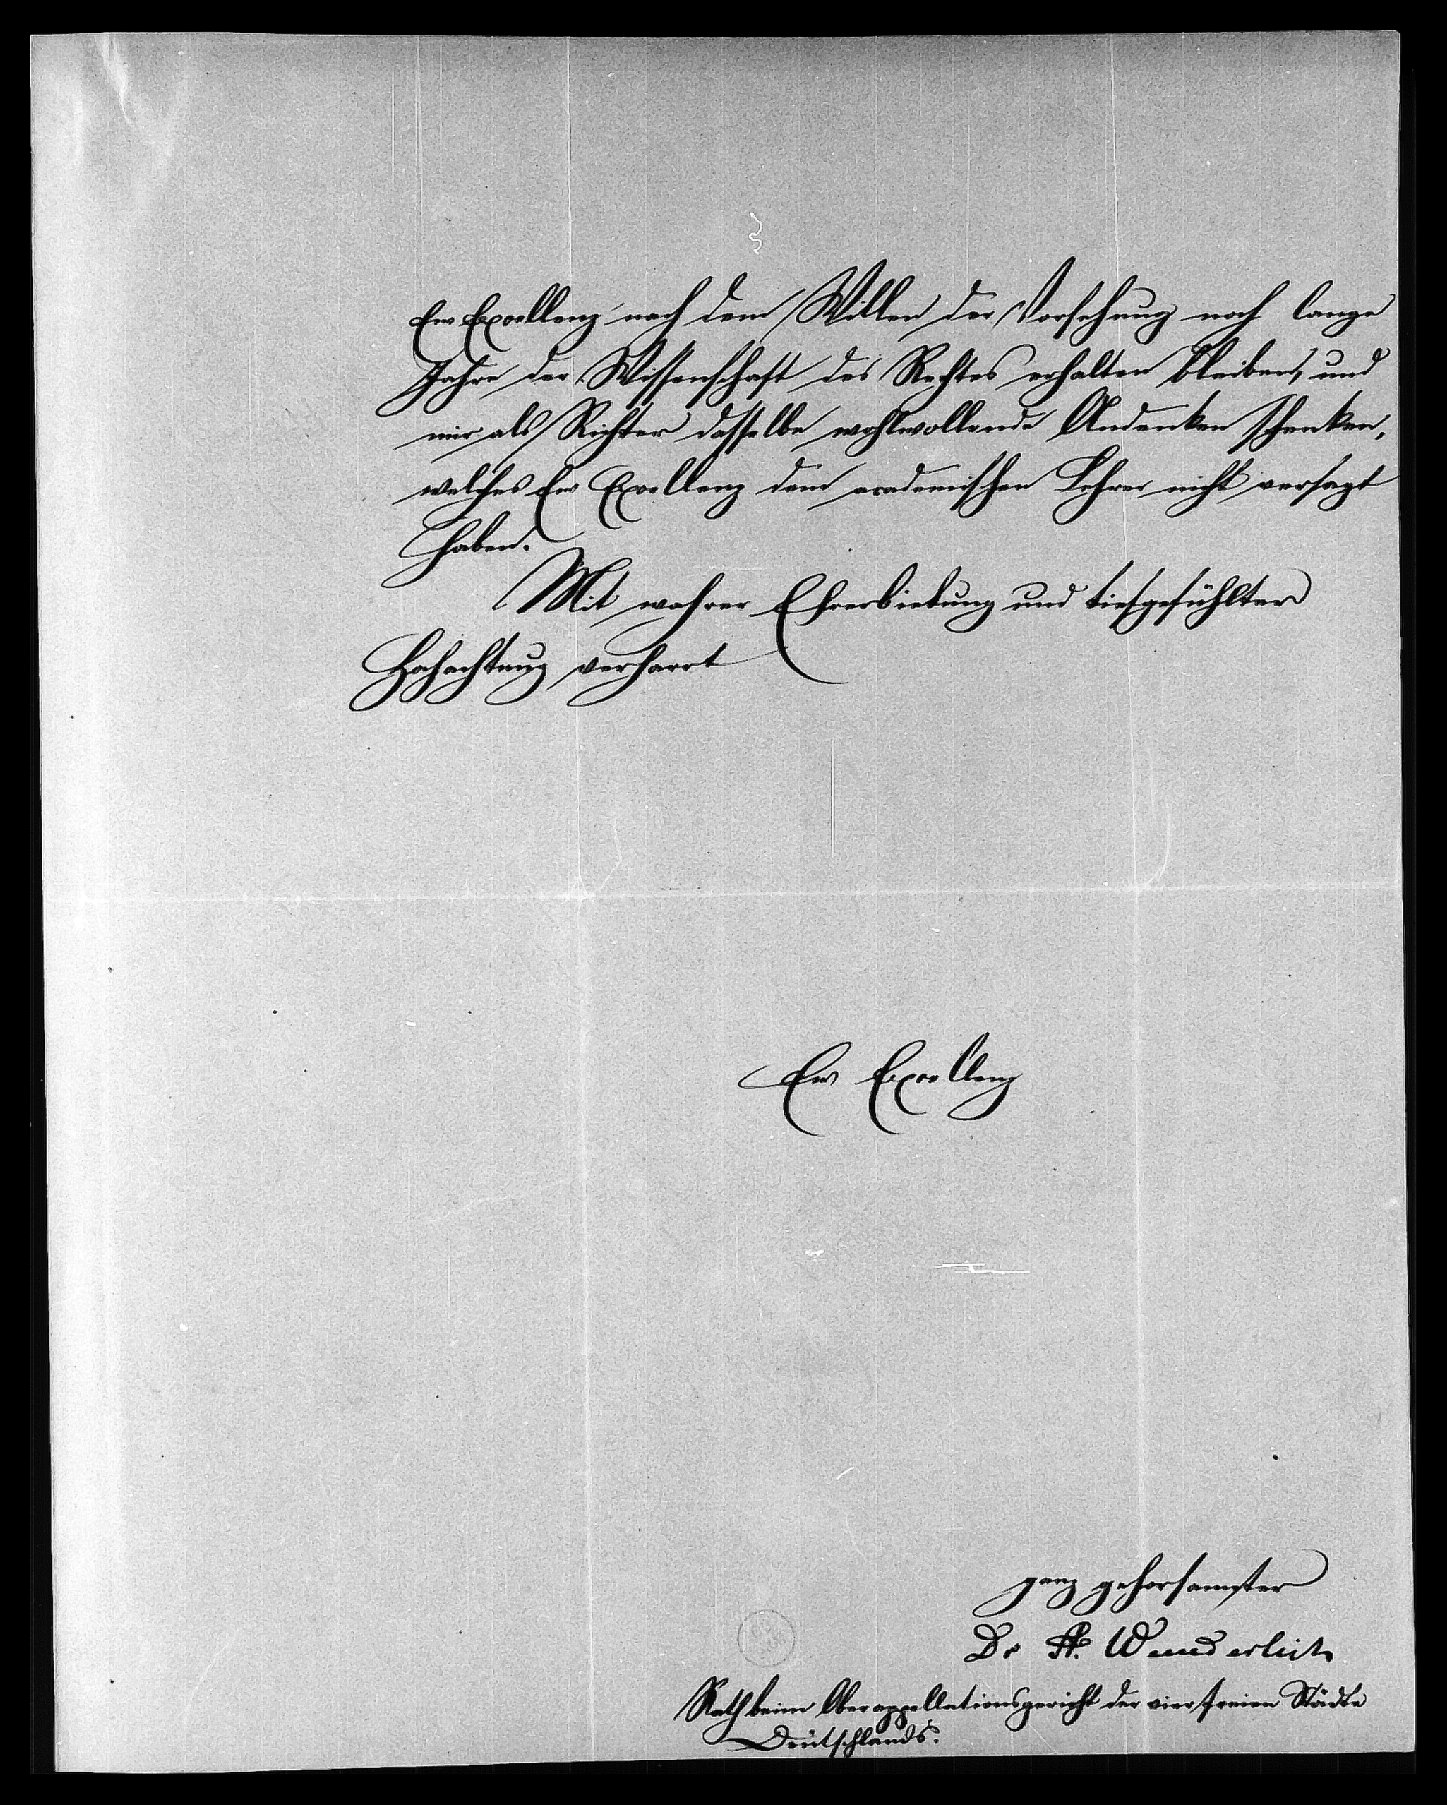 Ew Excellenz nach dem Willen der Vorsehung noch lange
Jahre der Wissenschaft des Rechtes erhalten bleiben, und
mir als Richter dasselbe wohlwollende Andenken schenken,
welches Ew Excellenz dem academischen Lehrer nicht versagt
haben.
Mit wahrer Ehrerbietung und tiefgefühlter
Hochachtung verharrt
Ew Excellenz
ganz gehorsamster
Dr A. Wunderlich
Rath beim Oberappellationsgericht der vier freien Städte
Deutschlands.